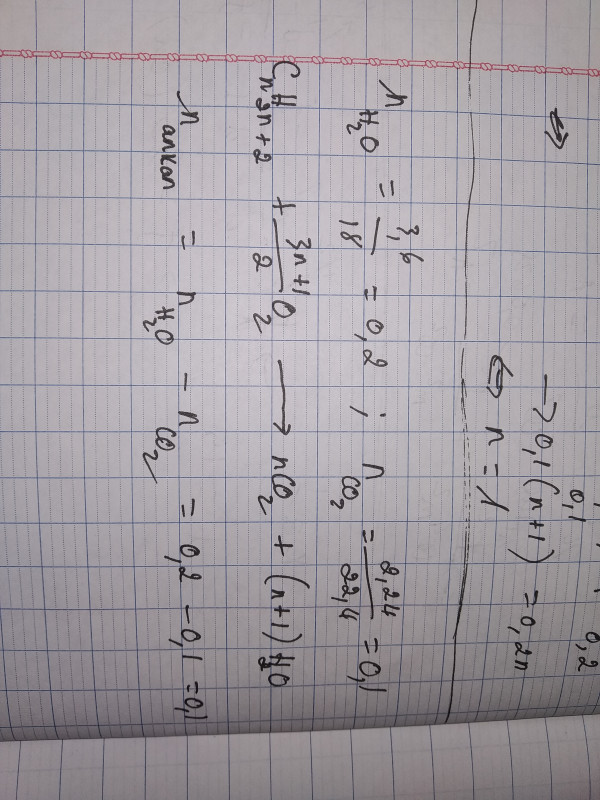 0,1 0,2
→ 0,1(n+1) = 0,2n
⇔ n = 1
n H₂O = 3,6/18 = 0,2 ; n CO₂ = 2,24/22,4 = 0,1
CnH2n+2 + 3n+1/2 O₂ → nCO₂ + (n+1)H₂O
n ankan = n H₂O - n CO₂ = 0,2 - 0,1 = 0,1